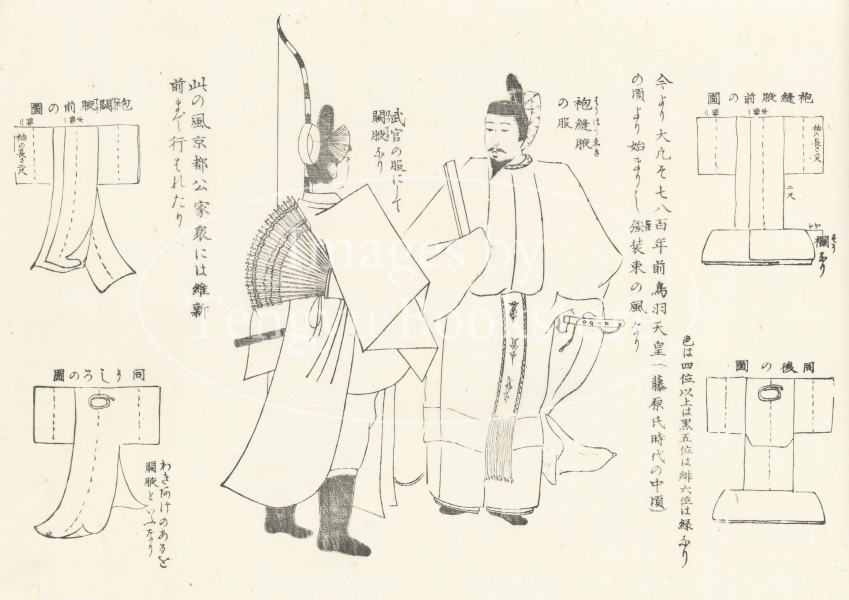 袍縫腋前の圖
袖の長さ二尺
二尺
襴なり
同後の圖
今より大凡そ七八百年前鳥羽天皇(藤原氏時代の中頃)
の頃より始まりし強装束の風なり
色は四位以上は黒五位は緋六位は緑なり
袍縫腋
の服
武官の服にして
闕腋なり
此の風京都公家衆には維新
前まで行はれたり
袍闕腋前の圖
袖の長さ二尺
同うしろの圖
わきあけのあるを
闕腋といふなり
Images by
Tengyu Bookstore